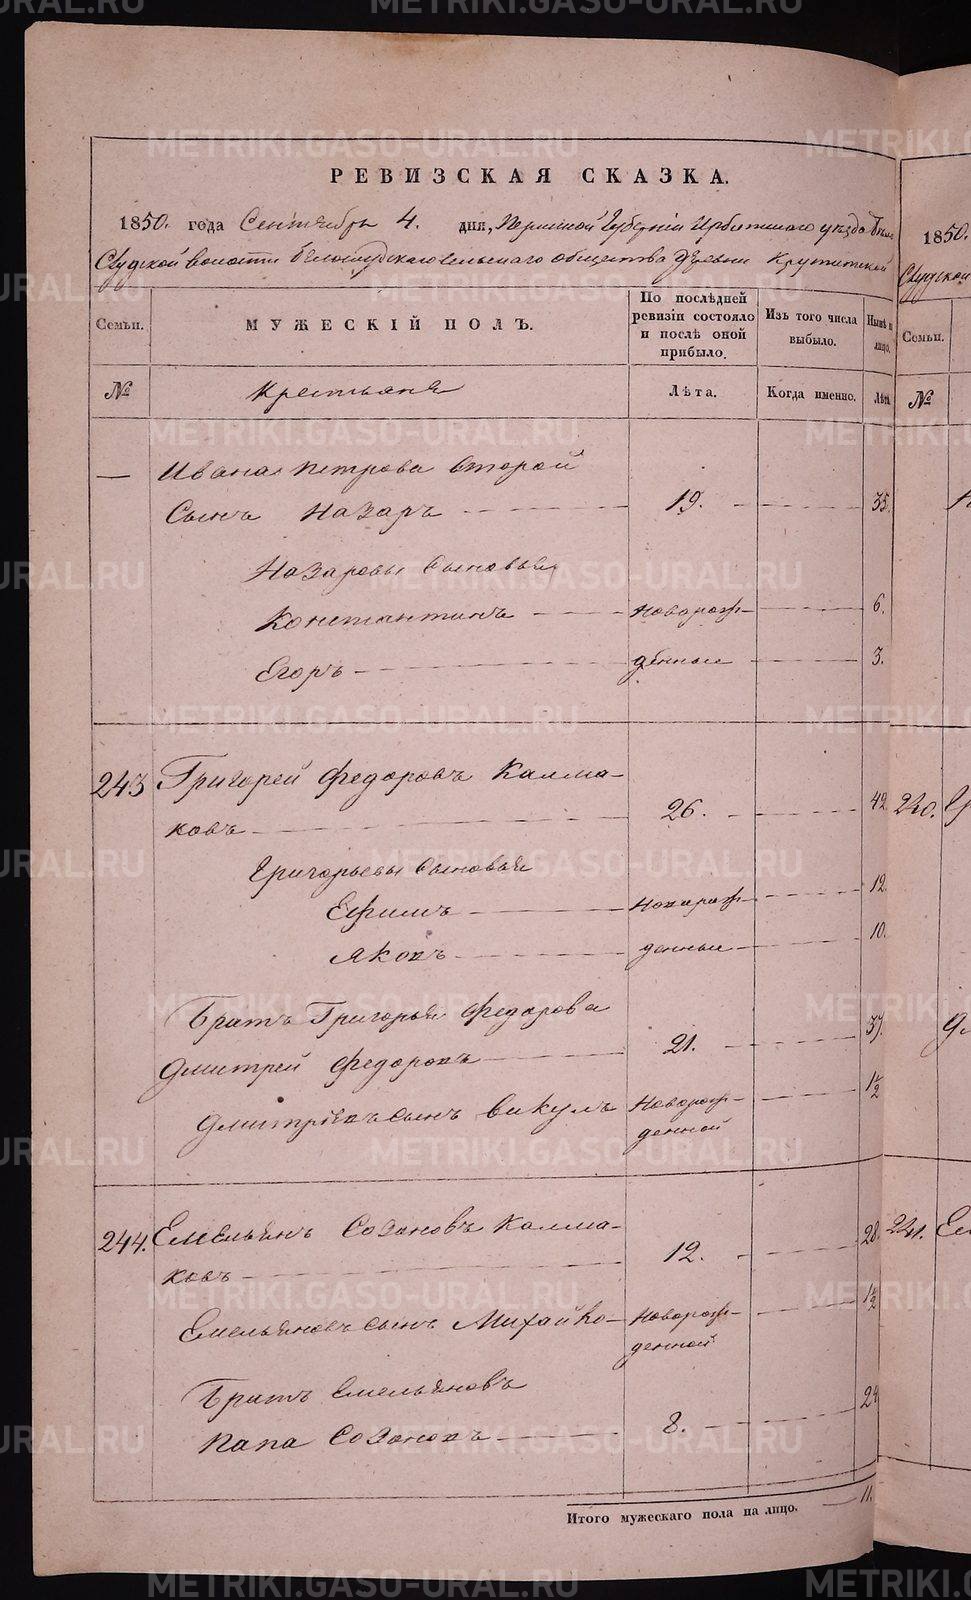 METRIKI.GASO-URAL.RU
РЕВИЗСКАЯ СКАЗКА.
1850. года Сентября 4. дня, Пермской Губернiи Ирбитскаго уѣзда Бѣло
Слудской волости Бѣлослудскаго сельскаго общества Деревни Крутитской
Семьи.
МУЖЕСКІЙ ПОЛЪ.
По послѣдней ревизіи состояло и послѣ оной прибыло.
Изъ того числа выбыло.
Нынѣ н лицо.
№
Крестьяне
Лѣта.
Когда именно.
Лѣта
— Ивана Петрова второй
Сынъ Назаръ 19. 35.
Назаровы сыновья
Константинъ новорож- 6.
Егоръ денные 3.
243 Григорей Федоровъ Калма-
ковъ 26. 42.
Григорьевы сыновья
Ефимъ Новорож- 12.
Яковъ денные 10.
Братъ Григорья Федорова
Дмитрей Федоровъ 21. 37.
Дмитрiевъ сынъ Викулъ Новорож- 1/2
денной
244. Емельянъ Созоновъ Калма-
ковъ 12. 28.
Емельяновъ сынъ Михайло Новорож- 1/2
денной
Братъ Емельяновъ
Папа Созоновъ 8. 24.
Итого мужескаго пола на лицо. 11.
1850.
Слудской
Семьи.
№
240.
241.